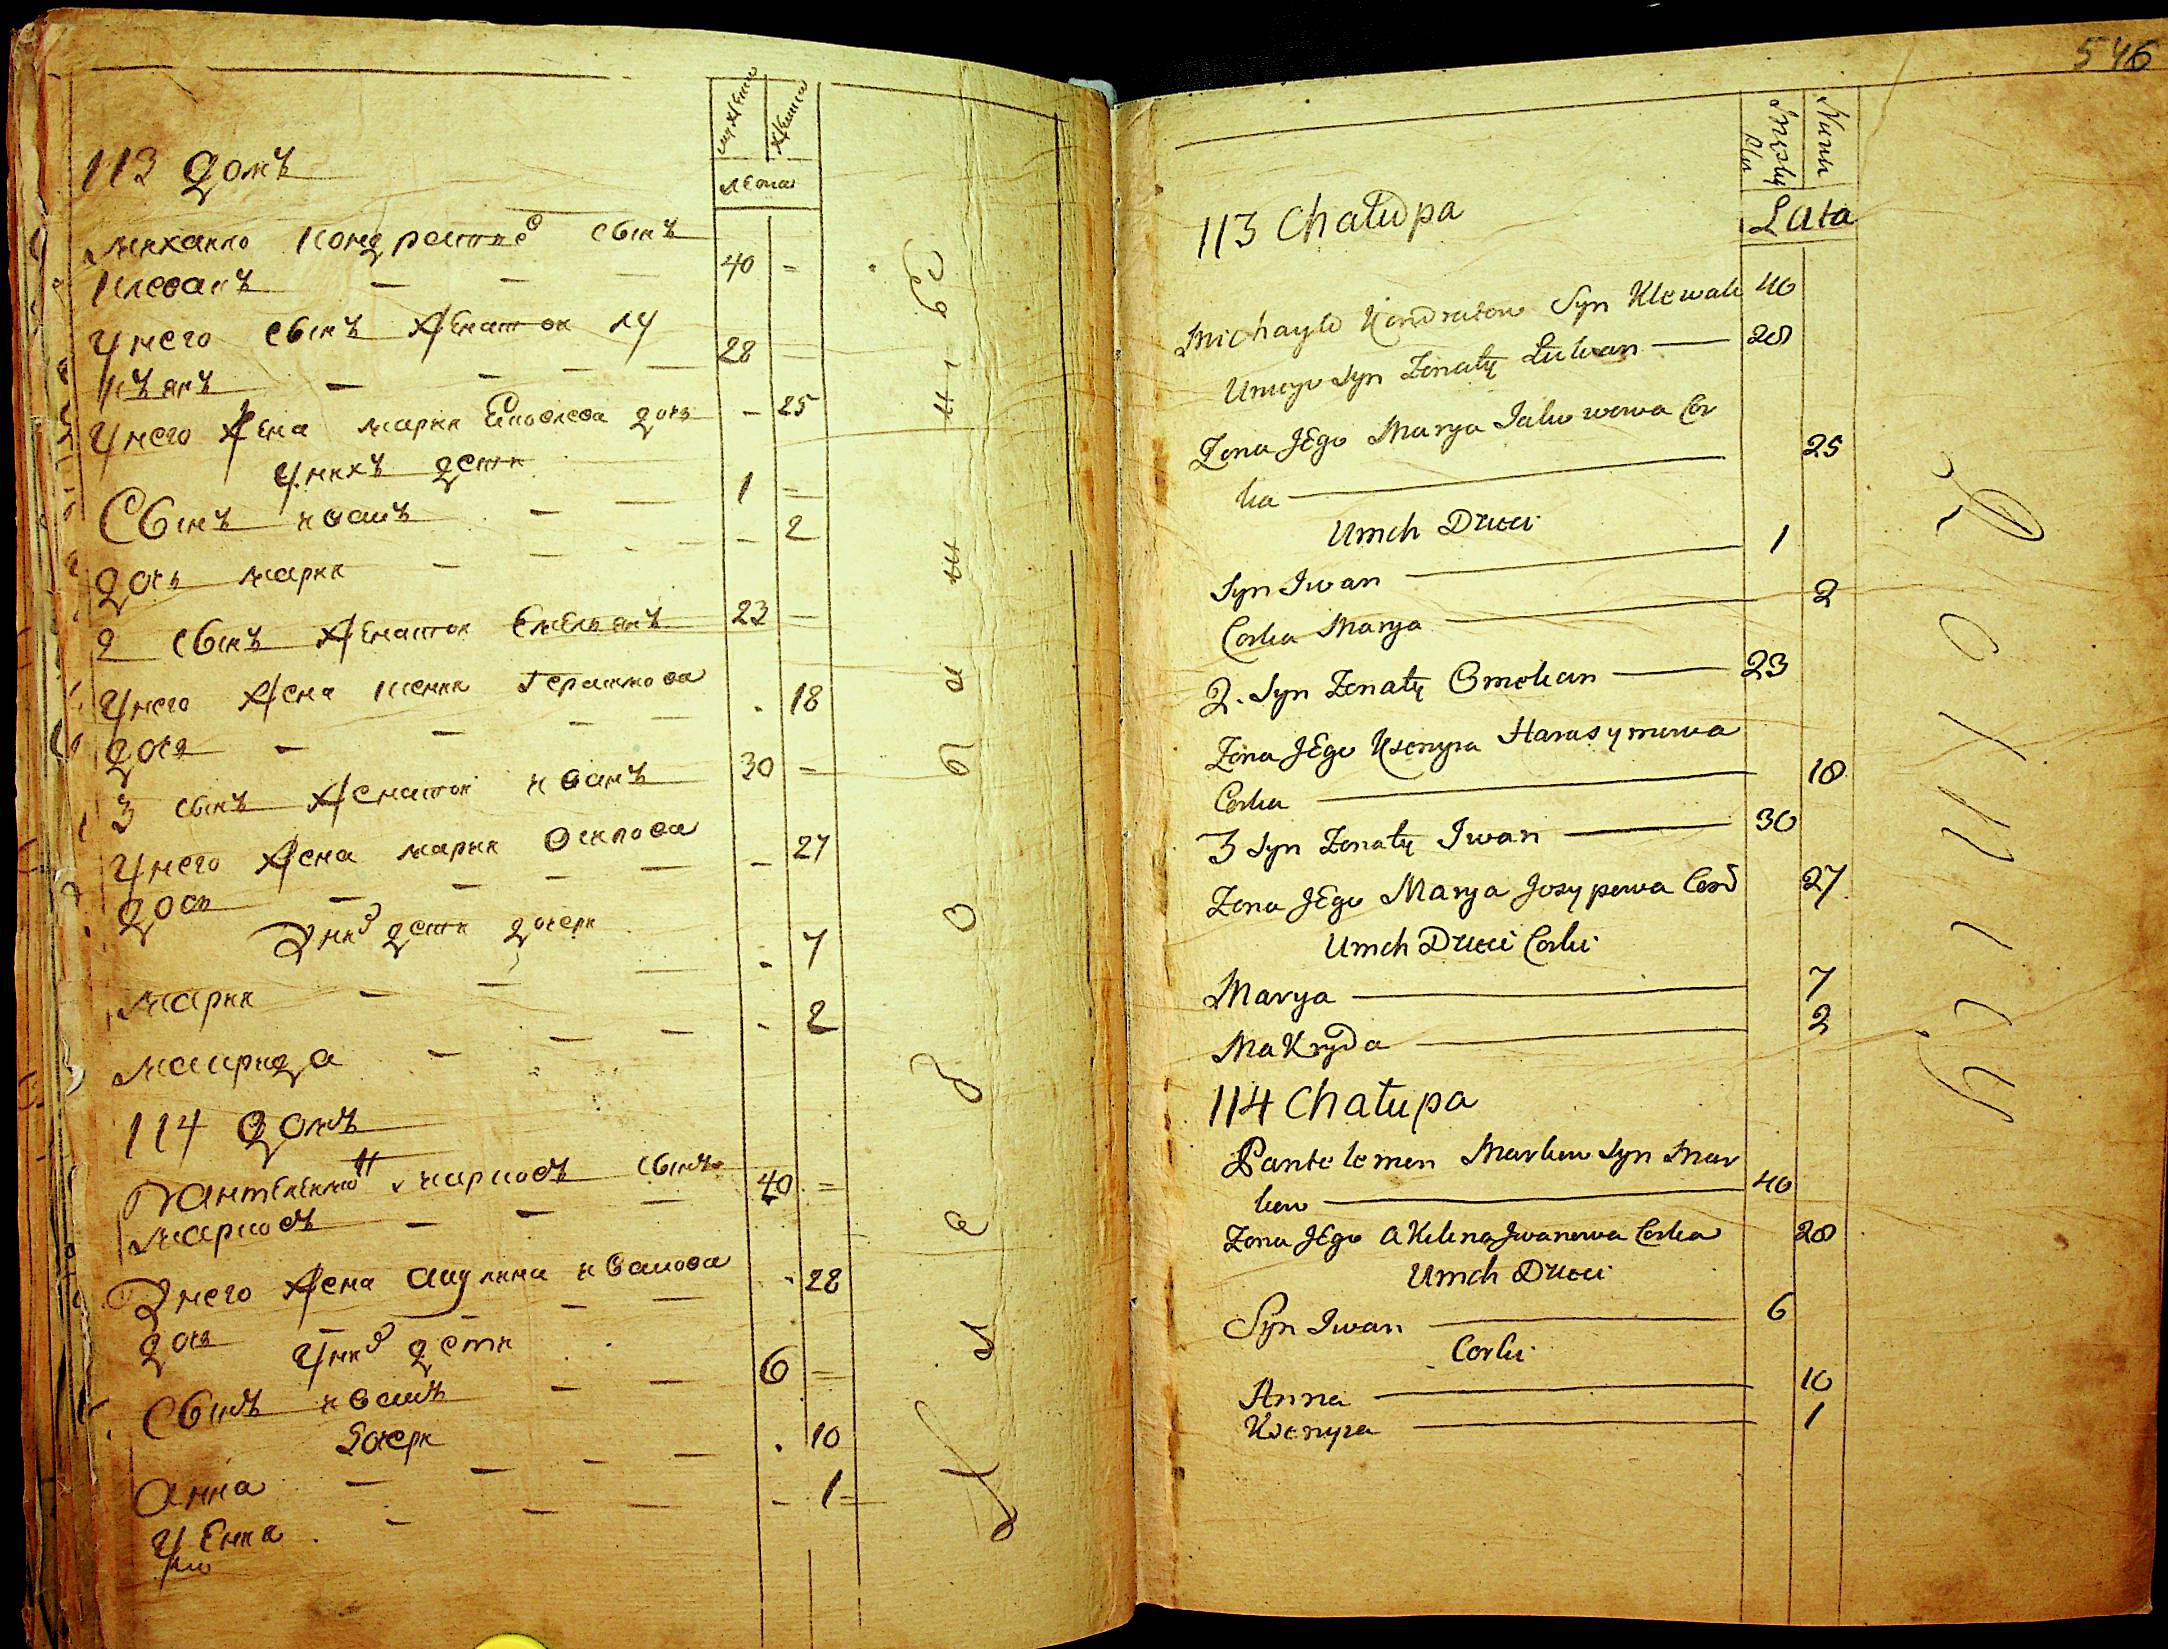 113 домъ
мужеска
женска
лета
михаило Кондратовъ сынъ
Клевакъ — — — 40 =
У него сынъ женатои Лу
кьянъ — — — — 28 =
У него жена мария Яковлева дочь - 25
У нихъ дети
Сынъ иванъ — — 1 =
дочь мария — — - 2
2 сынъ женатои Емельянъ 23 —
У него жена ксения Герасимова
дочь — — — — . 18
3 сынъ женатои иванъ 30 =
У него жена мария Осипова
дочь — — — — - 27
У них дети дочери
мария — — — - 7
макрида — — — - 2
114 домъ
Пантелеимон марковъ сынъ
марковъ — — — 40 =
У него жена акулина иванова
дочь — — — . 28
У них дети
Сынъ иванъ — — 6 =
дочери
Анна — — — — . 10
Ксения — — — - 1 =
546
Męsky
Płci
Lata
113 Chałupa
Michayło Kondratow Syn Klewak 40
Umego Syn Zonaty Łukian — 28
Zona Jego Marya Jakowowa Cor
ka — 25
Umch Dzieci
Syn Iwan — 1
Corka Marya — 2
2. Syn Zonaty Omelian — 23
Zona Jego Ksenyia Harasymowa
Corka — 18
3 Syn Zonaty Iwan — 30
Zona Jego Marya Josypowa Cor 27
Umch Dzieci Corki
Marya — 7
Makryda — 2
114 Chałupa
Pantelemon Markow Syn Mar
kow — 40
Zona Jego Akilina Iwanowa Corka 28
Umch Dzieci
Syn Iwan — 6
Corki
Anna — 10
Ksenyia — 1